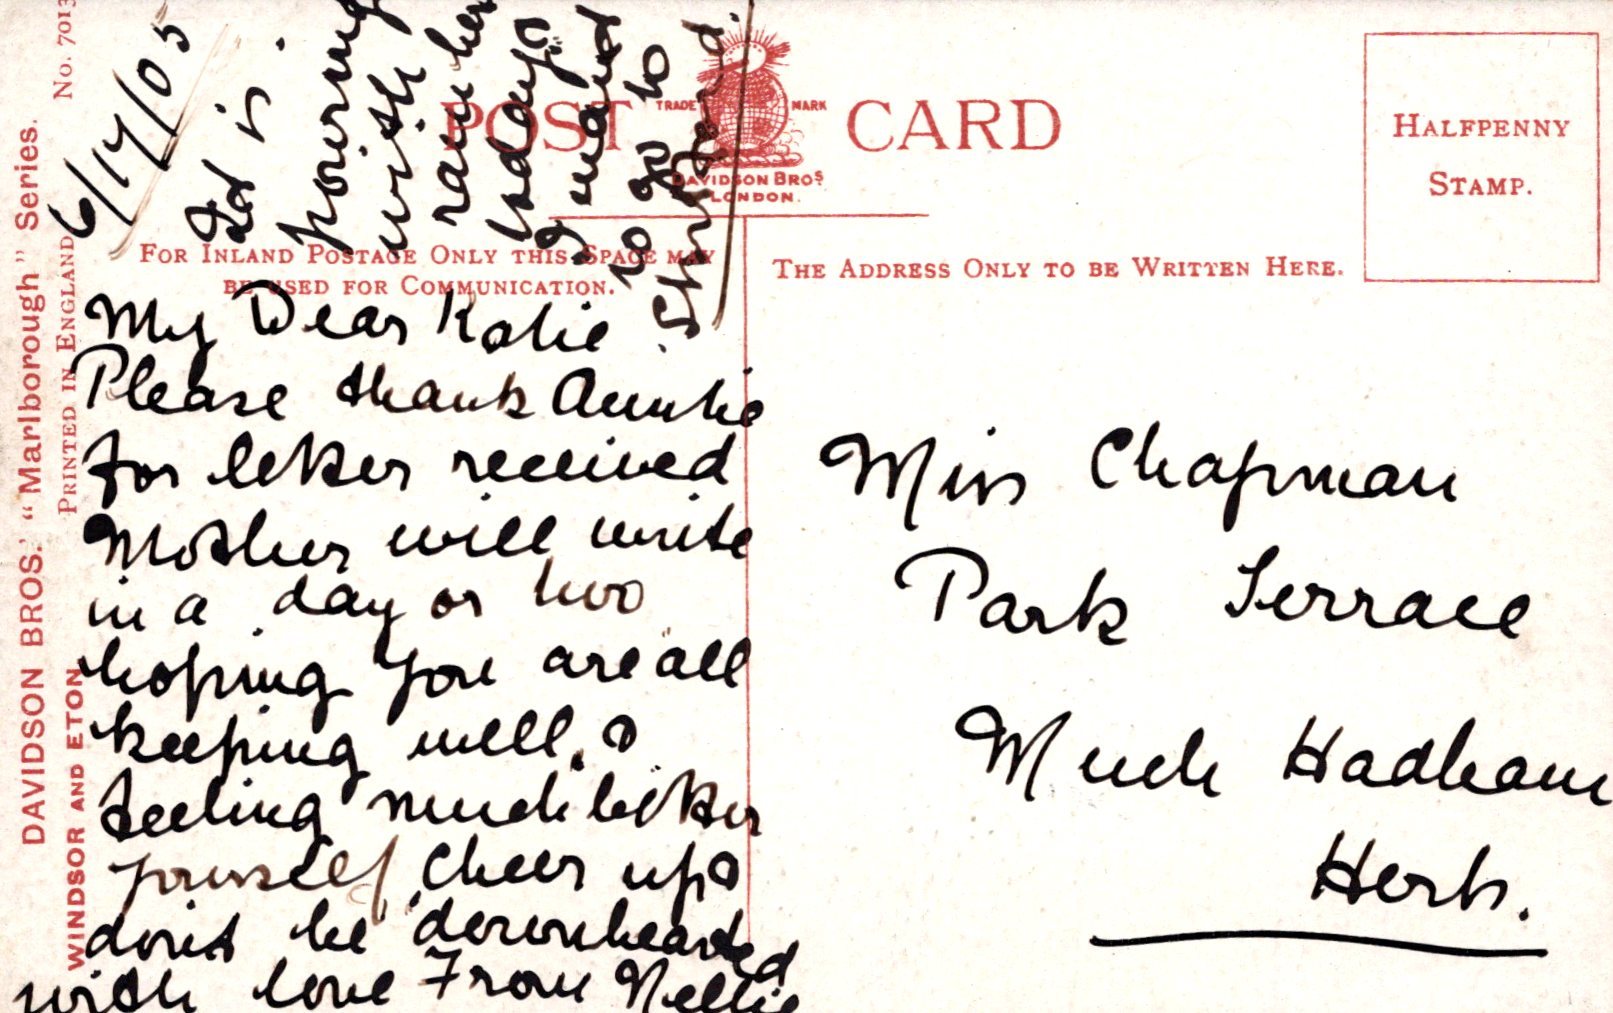 DAVIDSON BROS.' "Marlborough" Series.
PRINTED IN ENGLAND
No. 7013
WINDSOR AND ETON
POST CARD
TRADE MARK
DAVIDSON BROS
LONDON.
HALFPENNY
STAMP.
FOR INLAND POSTAGE ONLY THIS SPACE MAY
BE USED FOR COMMUNICATION.
THE ADDRESS ONLY TO BE WRITTEN HERE.
6/17/05
It is
pouring
with
rain here
today
I want
to go to
My Dear Katie
Please thank Auntie
for letter received
Mother will write
in a day or two
hoping you are all
keeping well, &
feeling much better
yourself, Cheer up &
dont be downhearted
with love From Nellie
Miss Chapman
Park Terrace
Much Hadham
Herts.